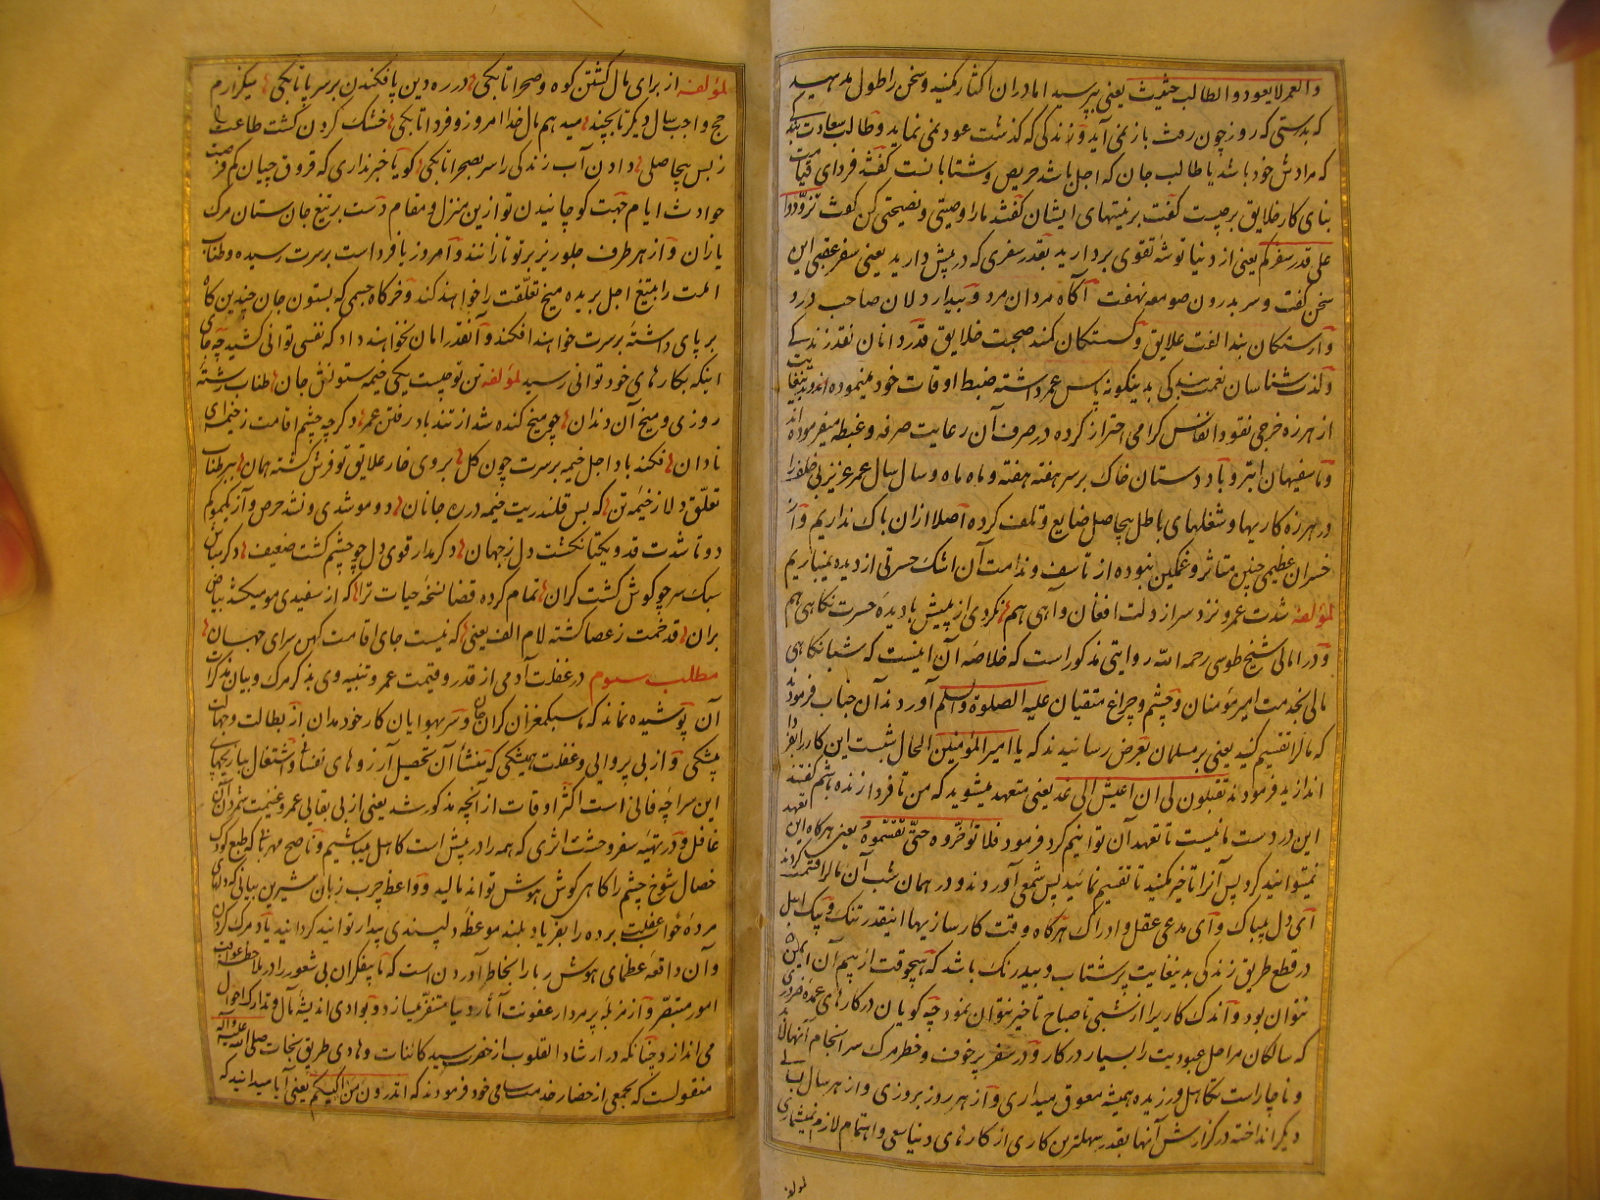 والعمر لا يعود والطالب حثيث یعنی بپرسید اما در آن اکثار مکنید و سخن را طول مدهید
که بدرستی که روز چون رفت باز نمی آید و زندگی که گذشت عود نمی نماید و طالب سعادت بنده
که مرادش خود باشد یا طالب جان که اجل باشد حریص و شتابانست گفتند فردای قیامت
بنای کار خلایق بر چیست گفت بر نیتهای ایشان گفتند ما را وصیتی و نصیحتی کن گفت تزودوا
علی قدر سفرکم یعنی از دنیا توشه تقوی بردارید بقدر سفری که در پیش دارید یعنی سفر عقبی این
سخن گفت و سر بدرون صومعه نهفت آگاه مردان مرد و بیدار دلان صاحب درد
وارستگان بند الفت علایق و گسستگان کمند صحبت خلایق قدردانان نقد زندگی
و لذت شناسان نعمت بندگی بدینگونه پاس عمر داشته ضبط اوقات خود مینموده اند و بدینغایت
از هرزه خرجی نقود انفاس گرامی احتراز کرده در صرف آن رعایت صرفه و غبطه میفرموده اند
و ما سفیهان ابتر و باد دستان خاک بر سر هفته هفته و ماه ماه و سال سال عمر عزیز بی خلف را
در هرزه کاریها و شغلهای باطل بیحاصل ضایع و تلف کرده اصلا ازان باک نداریم و از
خسران عظیمی چنین متاثر و غمگین نبوده از تاسف و ندامت آن اشک حسرتی از دیده نمیباریم
لمؤلفه شدت عمر و نزد سر از دلت افغان و آهی هم نکردی از پیش با دیده حسرت نگاهی هم
و در امالی شیخ طوسی رحمه الله روایتی مذکور است که خلاصه آن اینست که شبانگاهی
مالی بخدمت امیر مؤمنان و چشم و چراغ متقیان علیه الصلوة والسلم آوردند آن جناب فرمودند
که مالرا تقسیم کنید یعنی بر مسلمانان بعرض رسانیدند که یا امیر المؤمنین الحال شبست این کار را بفردا
اندازید فرمودند تقبلون لی ان اعیش الی غد یعنی متعهد میشوید که من تا فردا زنده باشم گفتند
این در دست ما نیست تا تعهد آن توانیم کرد فرمود فلا تؤخروه حتی تقسموه یعنی هرگاه این تعهد
نمیتوانید کرد پس آنرا تاخیر مکنید تا تقسیم نمائید پس شمعی آوردند و در همان شب آن مالرا قسمت کردند
ای دل بیباک و ای مدعی عقل و ادراک هرگاه وقت کارسازیها اینقدر تنک و پیک اجل
در قطع طریق زندگی بدینغایت پرشتاب و بیدرنگ باشد که هیچوقت از بیم آن ایمن
نتوان بود و اندک کاریرا از شبی تا صباح تاخیر نتوان نمود چه گویان در کارهای عمده ضروری
که سالکان مراحل عبودیت را بسیار در کار و در سفر پرخوف و خطر مرگ سرانجام آنها
و ناچار است تکاهل ورزیده همیشه معوق میداری و از هر روز بروزی و از هر سال بسالی
دیگر انداخته در گزارش آنها بقدر سهلترین کاری از کارهای دنیا سعی و اهتمام لازم نمیشماری
لمؤلفه
لمؤلفه از برای مال گشتن کوه و صحرا تا بکی در ره دین پا فکندن بر سر پا تا بکی میگذارم
حج واجب سال دیگر تا بچند میدهم مال خدا امروز و فردا تا بکی خشک کردن کشت طاعت
ز بس بیحاصلی دادن آب زندگی را سر بصحرا تا بکی گویا خبر نداری که قروق چیان کم فرصت
حوادث ایام جهت کوچانیدن تو ازین منزل و مقام دست بر تیغ جان ستان مرگ
یازان و از هر طرف جلو ریز بر تو تازانند و امروز یا فرداست بر سرت رسیده و طناب
املت را بتیغ اجل بریده میخ تعلقت را خواهند کند و خرگاه جسمی که بستون جان چندین گاه
بر پای داشتهٔ بر سرت خواهند افکند و آنقدر امان نخواهند داد که نفسی توانی کشید چه جای
اینکه بکارهای خود توانی رسید لمؤلفه تن تو چیست یکی خیمه ستونش جان طناب رشتهٔ
روزی و میخ آن دندان چو میخ کنده شد از تند باد رفتن عمر دگر چه چشم اقامت ز خیمه ای
نادان فکند باد اجل خیمه بر سرت چون گل بروی خار علایق تو فرش گشته همان ببر طناب
تعلق دلا ز خیمه تن که بس قلندریت خیمه در ره جانان دو مو شدی و نشد حرص و آز یکمو کم
دوتا شدت قد و یکتا نگشت دل ز جهان دگر مدار قوی دل چو چشم گشت ضعیف دگر مباش
سبک سر چو گوش گشت گران تمام کرده قضا نسخه حیات ترا که از سفیدی مو میکشد بیاض
بران قد خمت ز عصا گشته لام الف یعنی که نیست جای اقامت کهن سرای جهان
مطلب سیوم در غفلت آدمی از قدر و قیمت عمر و تنبیه وی بذکر مرگ و بیان مذکرات
آن پوشیده نماند که ما سبکمغزان گران جان و سر بهوایان کار خود مدان از بطالت و جهالت
پیشگی و از بی پروایی و غفلت همیشگی که منشأ آن تحصیل آرزوهای نفسانی و اشتغال ببازیچهای
این سراچه فانی است اکثر اوقات از آنچه مذکور شد یعنی از بی بقایی عمر و غنیمت شمردن آن
غافل و در تهیه سفر وحشت اثری که همه را در پیش است کاهل میباشیم و ناصح مهربانی که طبع کودک
خصال شوخ چشم را گاهی گوش هوش تواند مالید و واعظ چرب زبان شیرین بیانی که دلهای
مردهٔ خواب غفلت برده را بفریاد بلند موعظهٔ دلپسندی بیدار توانید گردانید یاد مرگ کردن
و آن واقعهٔ عظمای هوش ربا را بخاطر آوردن است که بیفکران بی شعور را در ملاحظه عواقب
امور متبصر و از مزبله پر مردار عفونت آثار دنیا متنفر میسازد و بوادی اندیشهٔ مآل و تدارک احوال
می اندازد چنانکه در ارشاد القلوب از حضرت سید کائنات و هادی طریق نجات صلی الله علیه و آله
منقولست که بجمعی از حضار خدمت سامی خود فرمودند که اتدرون من اکیسکم یعنی آیا میدانید که